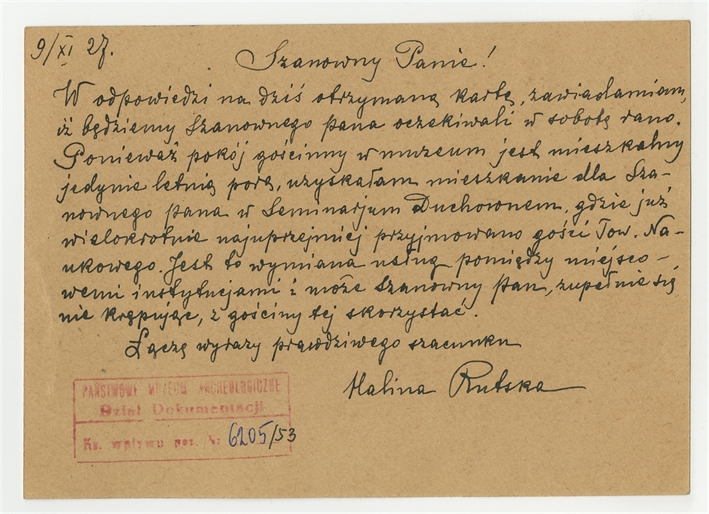 9/XI 27.
Szanowny Panie!
W odpowiedzi na dziś otrzymaną kartę, zawiadamiam,
iż będziemy Szanownego Pana oczekiwali w sobotę rano.
Ponieważ pokój gościnny w muzeum jest mieszkalny
jedynie letnią porą, uzyskałam mieszkanie dla Sza-
nownego Pana w Seminarjum Duchownem, gdzie już
wielokrotnie najuprzejmiej przyjmowano gości Tow. Na-
ukowego. Jest to wymiana usług pomiędzy miejsco-
wemi instytucjami i może Szanowny Pan, zupełnie się
nie krępując, z gościny tej skorzystać.
Łączę wyrazy prawdziwego szacunku
Halina Rutska
PAŃSTWOWE MUZEUM ARCHEOLOGICZNE
Dział Dokumentacji
Ks. wpływu poz. Nr 6205/53